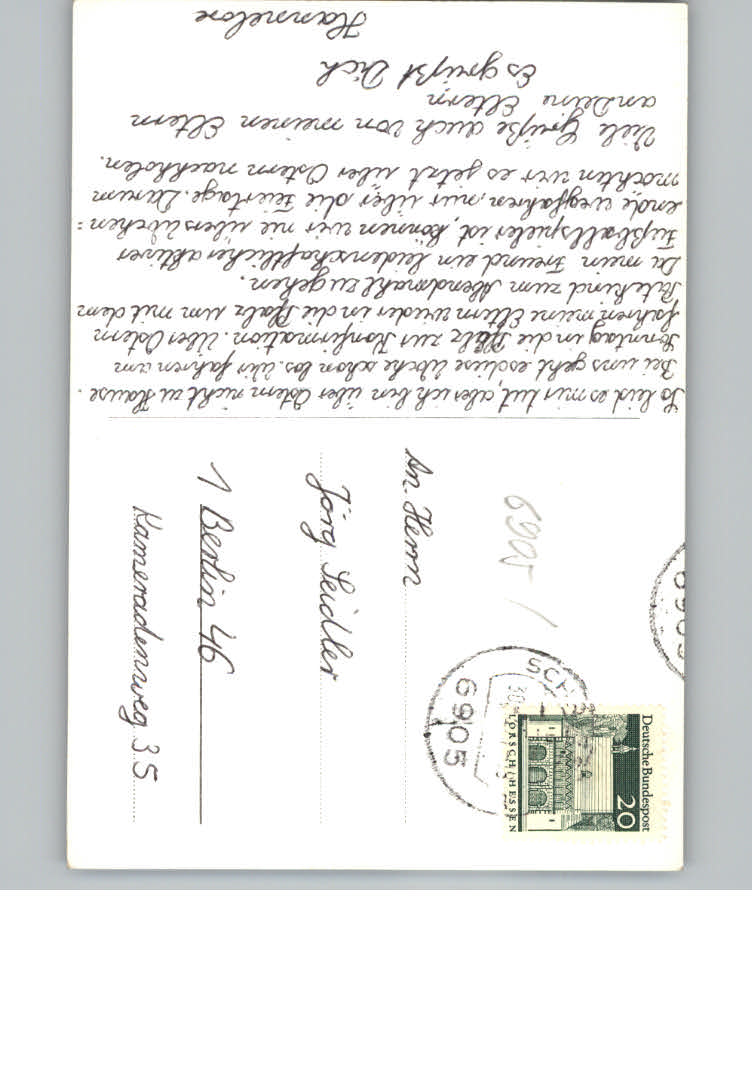 So leid es mir tut, aber ich bin über Ostern nicht zu Hause.
Bei uns geht es diese Woche schon los. Wir fahren am
Sonntag in die Pfalz zur Konfirmation. Über Ostern
fahren meine Eltern wieder in die Pfalz um mit dem
Patekind zum Abendmahl zu gehen.
Da mein Freund ein leidenschaftlicher aktiver
Fußballspieler ist, können wir nie übers Wochen=
ende wegfahren, nur über die Feiertage. Darum
möchten wir es jetzt über Ostern nachholen.
Viele Grüße auch von meinen Eltern
an Deine Eltern
Es grüßt Dich
Hannelore
6905
An Herrn
Jörg Seidler
1 Berlin 46
Kameradenweg 35
Deutsche Bundespost
20
LORSCH/HESSEN
6905
SCH
6905